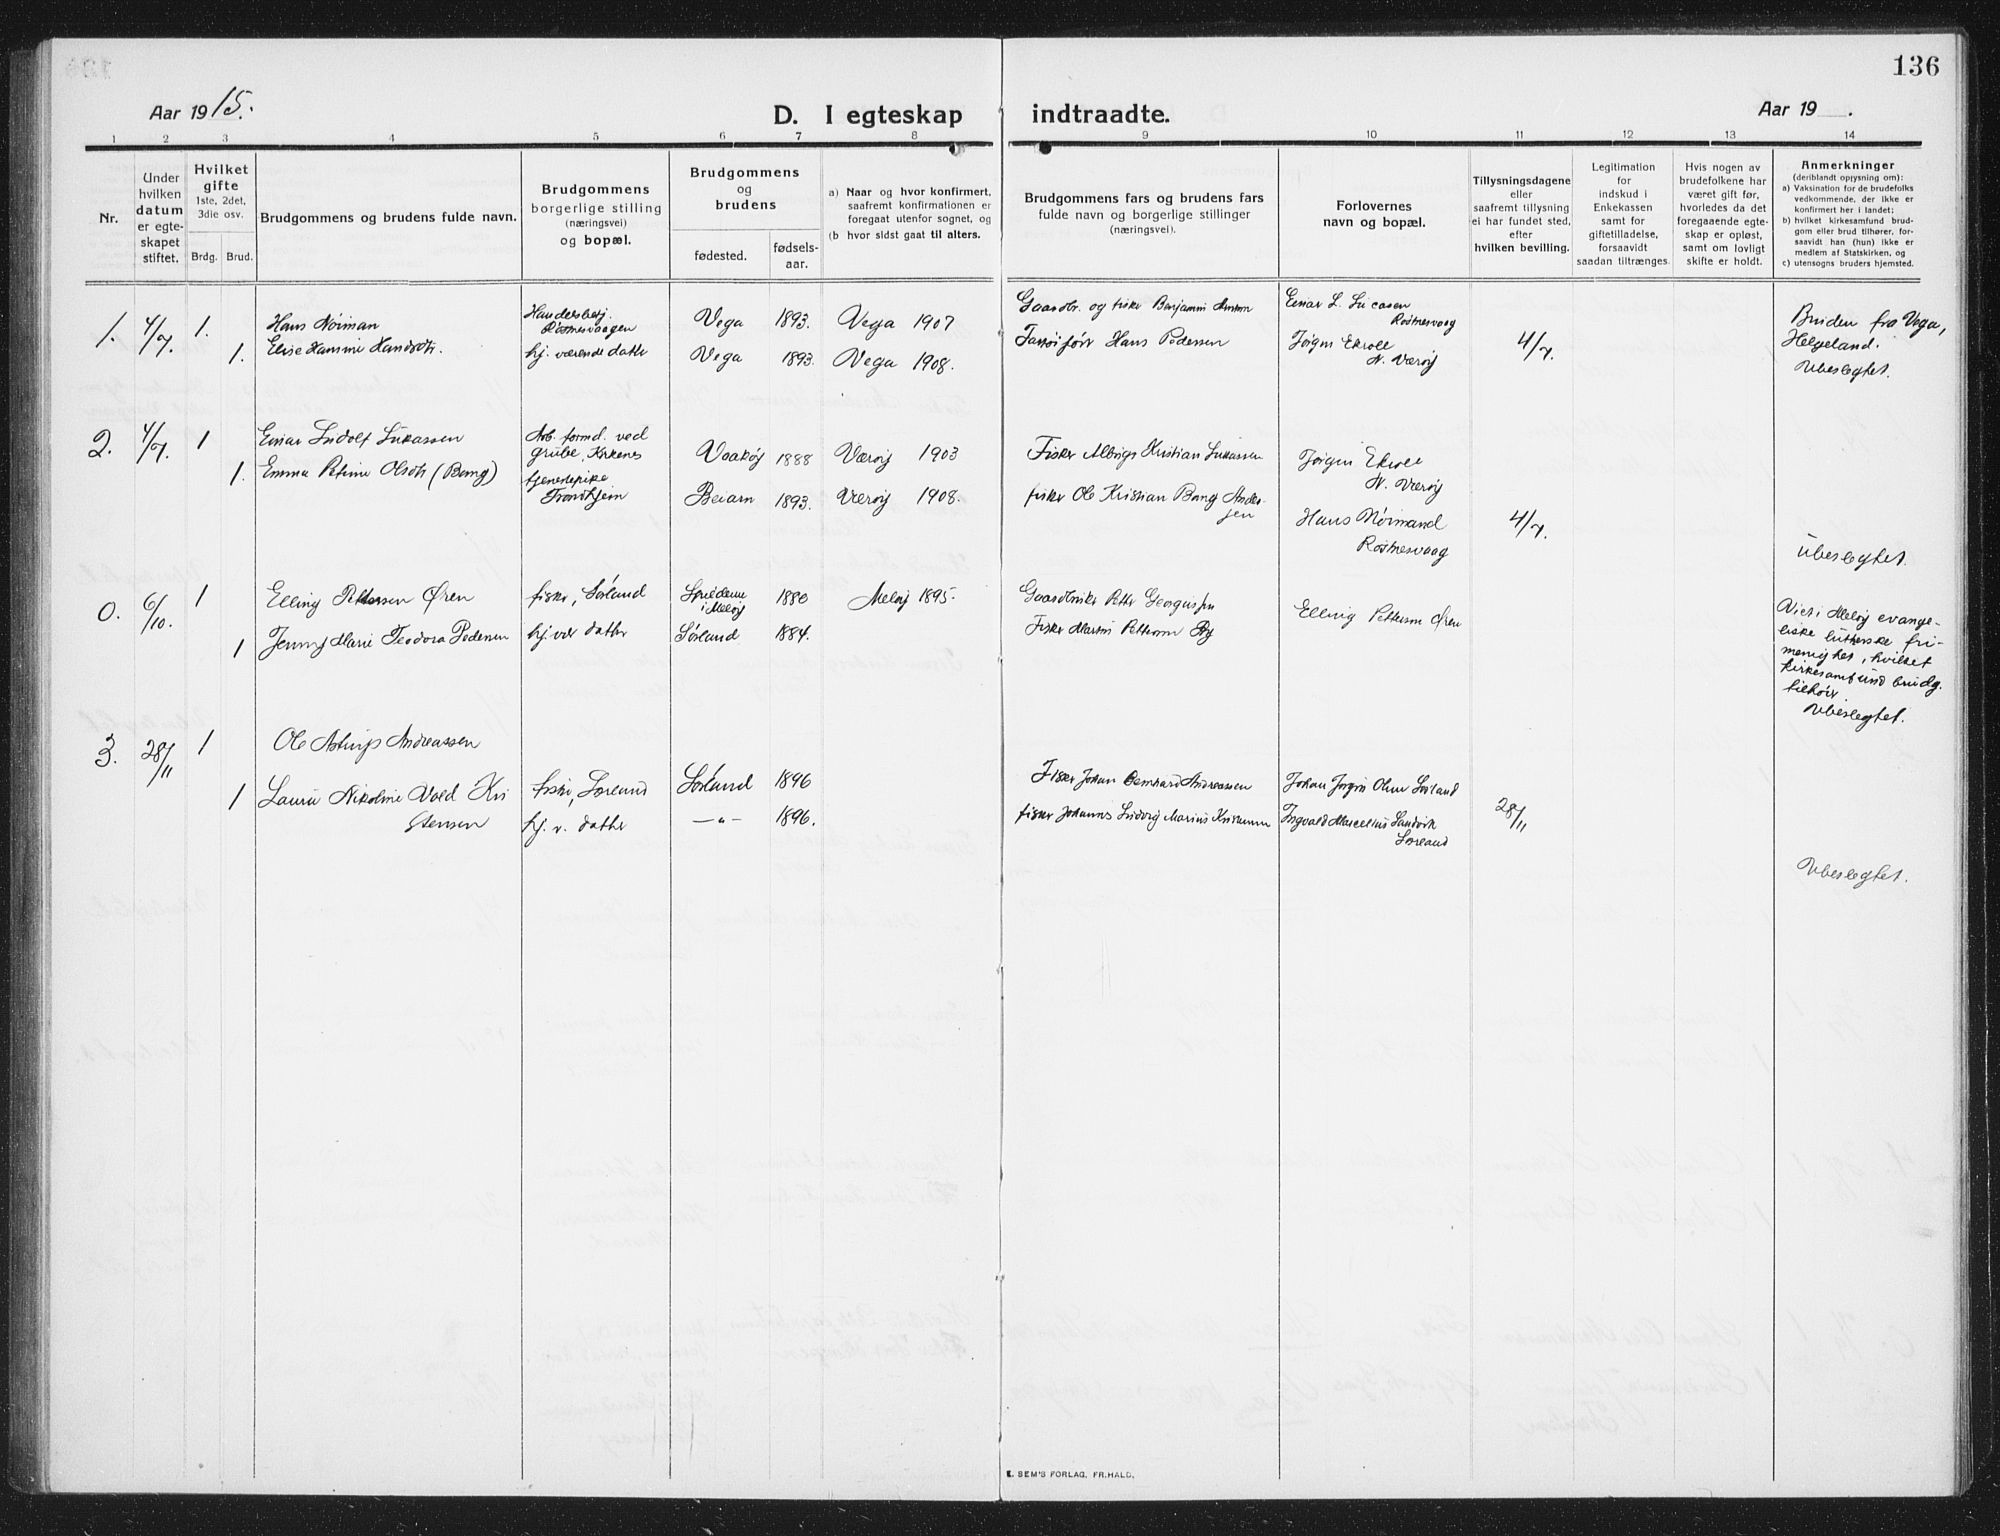 136
Aar 1915.
D. I egteskap indtraadte.
Aar 19 .
1 2 3 4 5 6 7 8 9 10 11 12 13 14
Nr.
Under
hvilken
datum
er egte-
skapet
stiftet.
Hvilket
gifte
1ste, 2det,
3die osv.
Brdg. Brud.
Brudgommens og brudens fulde navn.
Brudgommens
borgerlige stilling
(næringsvei)
og bopæl.
Brudgommens
og
brudens
fødested.
fødsels-
aar.
a) Naar og hvor konfirmert,
saafremt konfirmationen er
foregaat utenfor sognet, og
(b hvor sidst gaat til alters.
Brudgommens fars og brudens fars
fulde navn og borgerlige stillinger
(næringsvei).
Forlovernes
navn og bopæl.
Tillysningsdagene
eller
saafremt tillysning
ei har fundet sted,
efter
hvilken bevilling.
Legitimation
for
indskud i
Enkekassen
samt for
giftetilladelse,
forsaavidt
saadan tiltrænges.
Hvis nogen av
brudefolkene har
været gift før,
hvorledes da det
foregaaende egte-
skap er opløst,
samt om lovligt
skifte er holdt.
Anmerkninger
(deriblandt oplysning om):
a) Vaksination for de brudefolks
vedkommende, der ikke er
konfirmert her i landet;
b) hvilket kirkesamfund brud-
gom eller brud tilhører, for-
saavidt han (hun) ikke er
medlem af Statskirken, og
c) utensogns bruders hjemsted.
1. 4/7. 1.
Hans Nöiman
Handelsbetj.
Röstnesvaagen
Vega 1893. Vega 1907
Gaardbr. og fisker Benjamin
Einar L. Lucasen
Röstnesvaag
1.
Elise Hansine Hansdtr.
hj. værende datter
Vega 1893. Vega 1908.
Hans Pedersen
Jörgen Ekroll
N. Væröy
4/7.
Bruden fra Vega,
Helgeland.
Ubeslegtet.
2. 4/7. 1
Einar Ludolf Lukassen
Arb. formd. ved
grube, Kirkenes
1888 Væröy 1903
Fisker Albrigt Kristian Lukassen
Jörgen Ekroll
N. Væröy
1.
Emma Petrine Olsdtr (Bang)
tjenestepike
Trondhjem
Beiarn 1893. Væröy 1908.
fisker Ole Kristian Bang Ander-
sen
Hans Nöimand
Röstnesvaag
4/7.
Ubeslegtet.
0. 6/10. 1
Elling Pettersen Ören
fisker, Sörland
i Melöy
1880 Melöy 1895.
Gaardbruker Petter Georgussen
Elling Pettersen Ören
1
Jenny Marie Teodora Pedersen
hj. vær datter
Sörland 1884.
Fisker Martin Pettersen
Viet i Melöy evange-
liske lutherske fri-
menighet, hvilket
kirkesamfund brudg.
tilhör
Ubeslegtet.
3. 28/11 1
Ole Astrup Andreassen
fisker, Sörland
Sörland 1896
Fisker Johan Bernhard Andreassen
Johan Jörgen Olsen Sörland
1
Laura Nikoline Vold Kri
stensen
hj. v. datter
—„— 1896.
fisker Johannes Ludvig Marius Kristensen
Ingvald Marcelius Sandvik
Sörland
28/11
Ubeslegtet.
E. SEM'S FORLAG, FR.HALD.